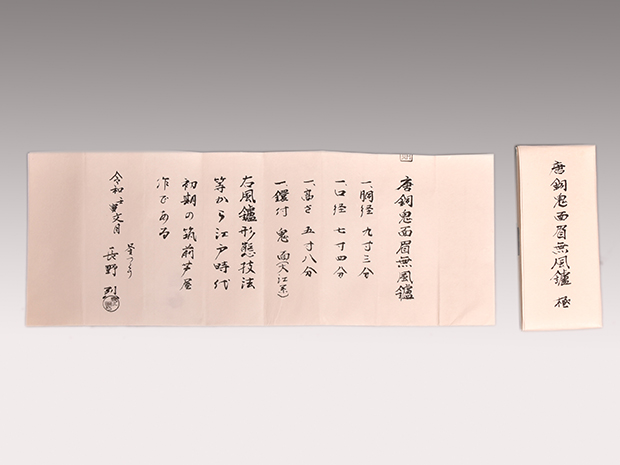 唐銅鬼面眉無風鑪
一、胴径 九寸三分
一、口径 七寸四分
一、高さ 五寸八分
一、鐶付 鬼面(大江系)
右風鑪形態技法
等から江戸時代
初期の筑前芦屋
作である
令和 文月
釜つくり
長野 烈
唐銅鬼面眉無風鑪 極